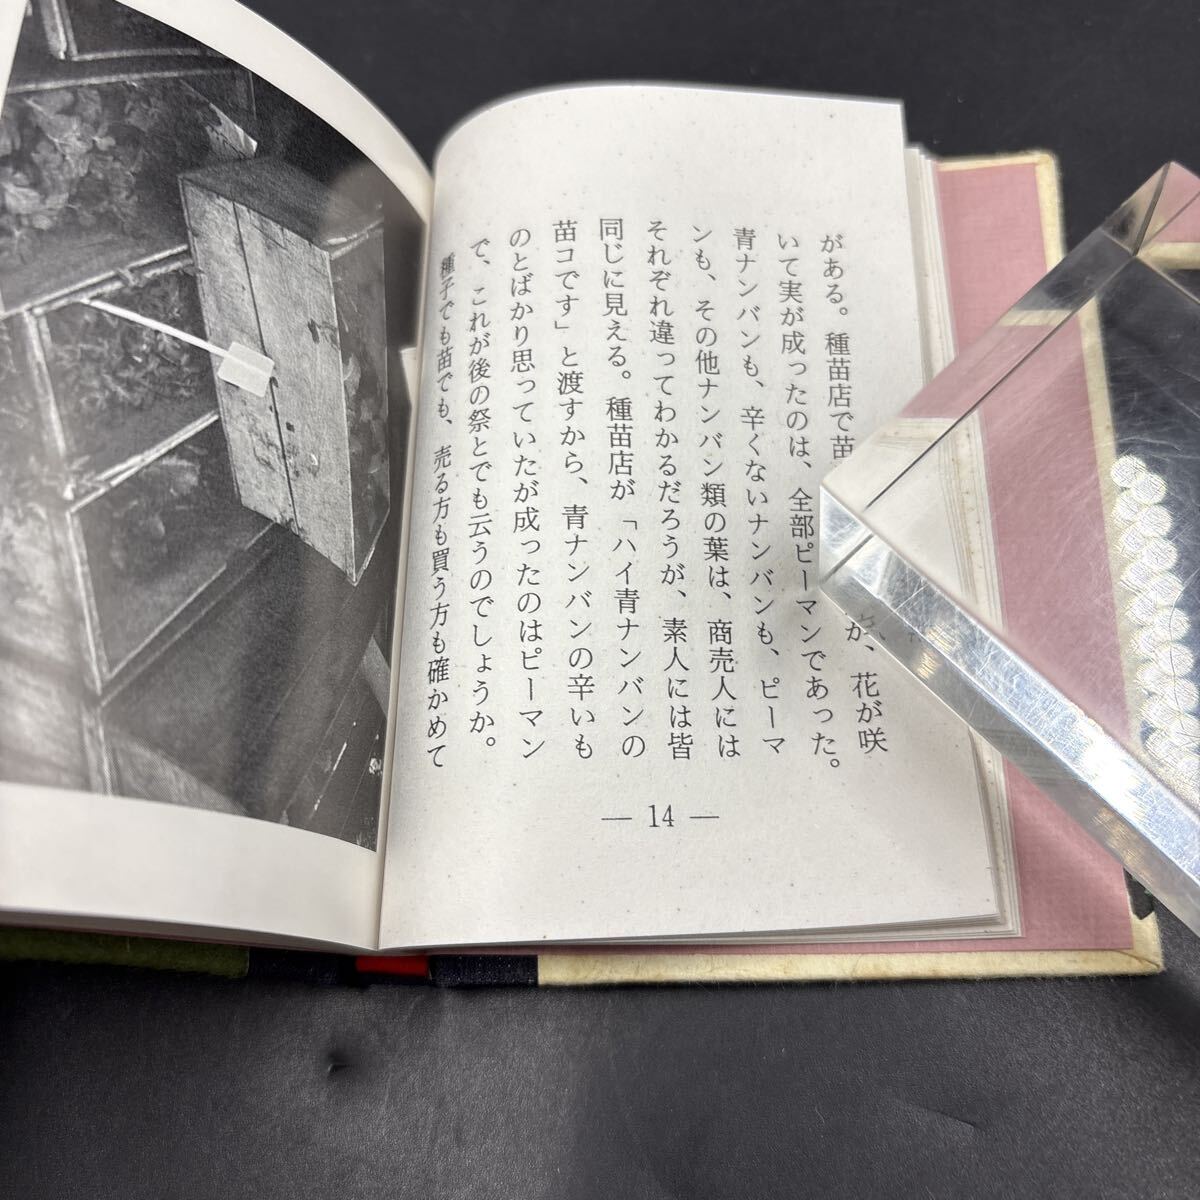 がある。種苗店で苗 が、花が咲
いて実が成ったのは、全部ピーマンであった。
青ナンバンも、辛くないナンバンも、ピーマ
ンも、その他ナンバン類の葉は、商売人には
それぞれ違ってわかるだろうが、素人には皆
同じに見える。種苗店が「ハイ青ナンバンの
苗コです」と渡すから、青ナンバンの辛いも
のとばかり思っていたが成ったのはピーマン
で、これが後の祭とでも云うのでしょうか。
種子でも苗でも、売る方も買う方も確かめて
— 14 —